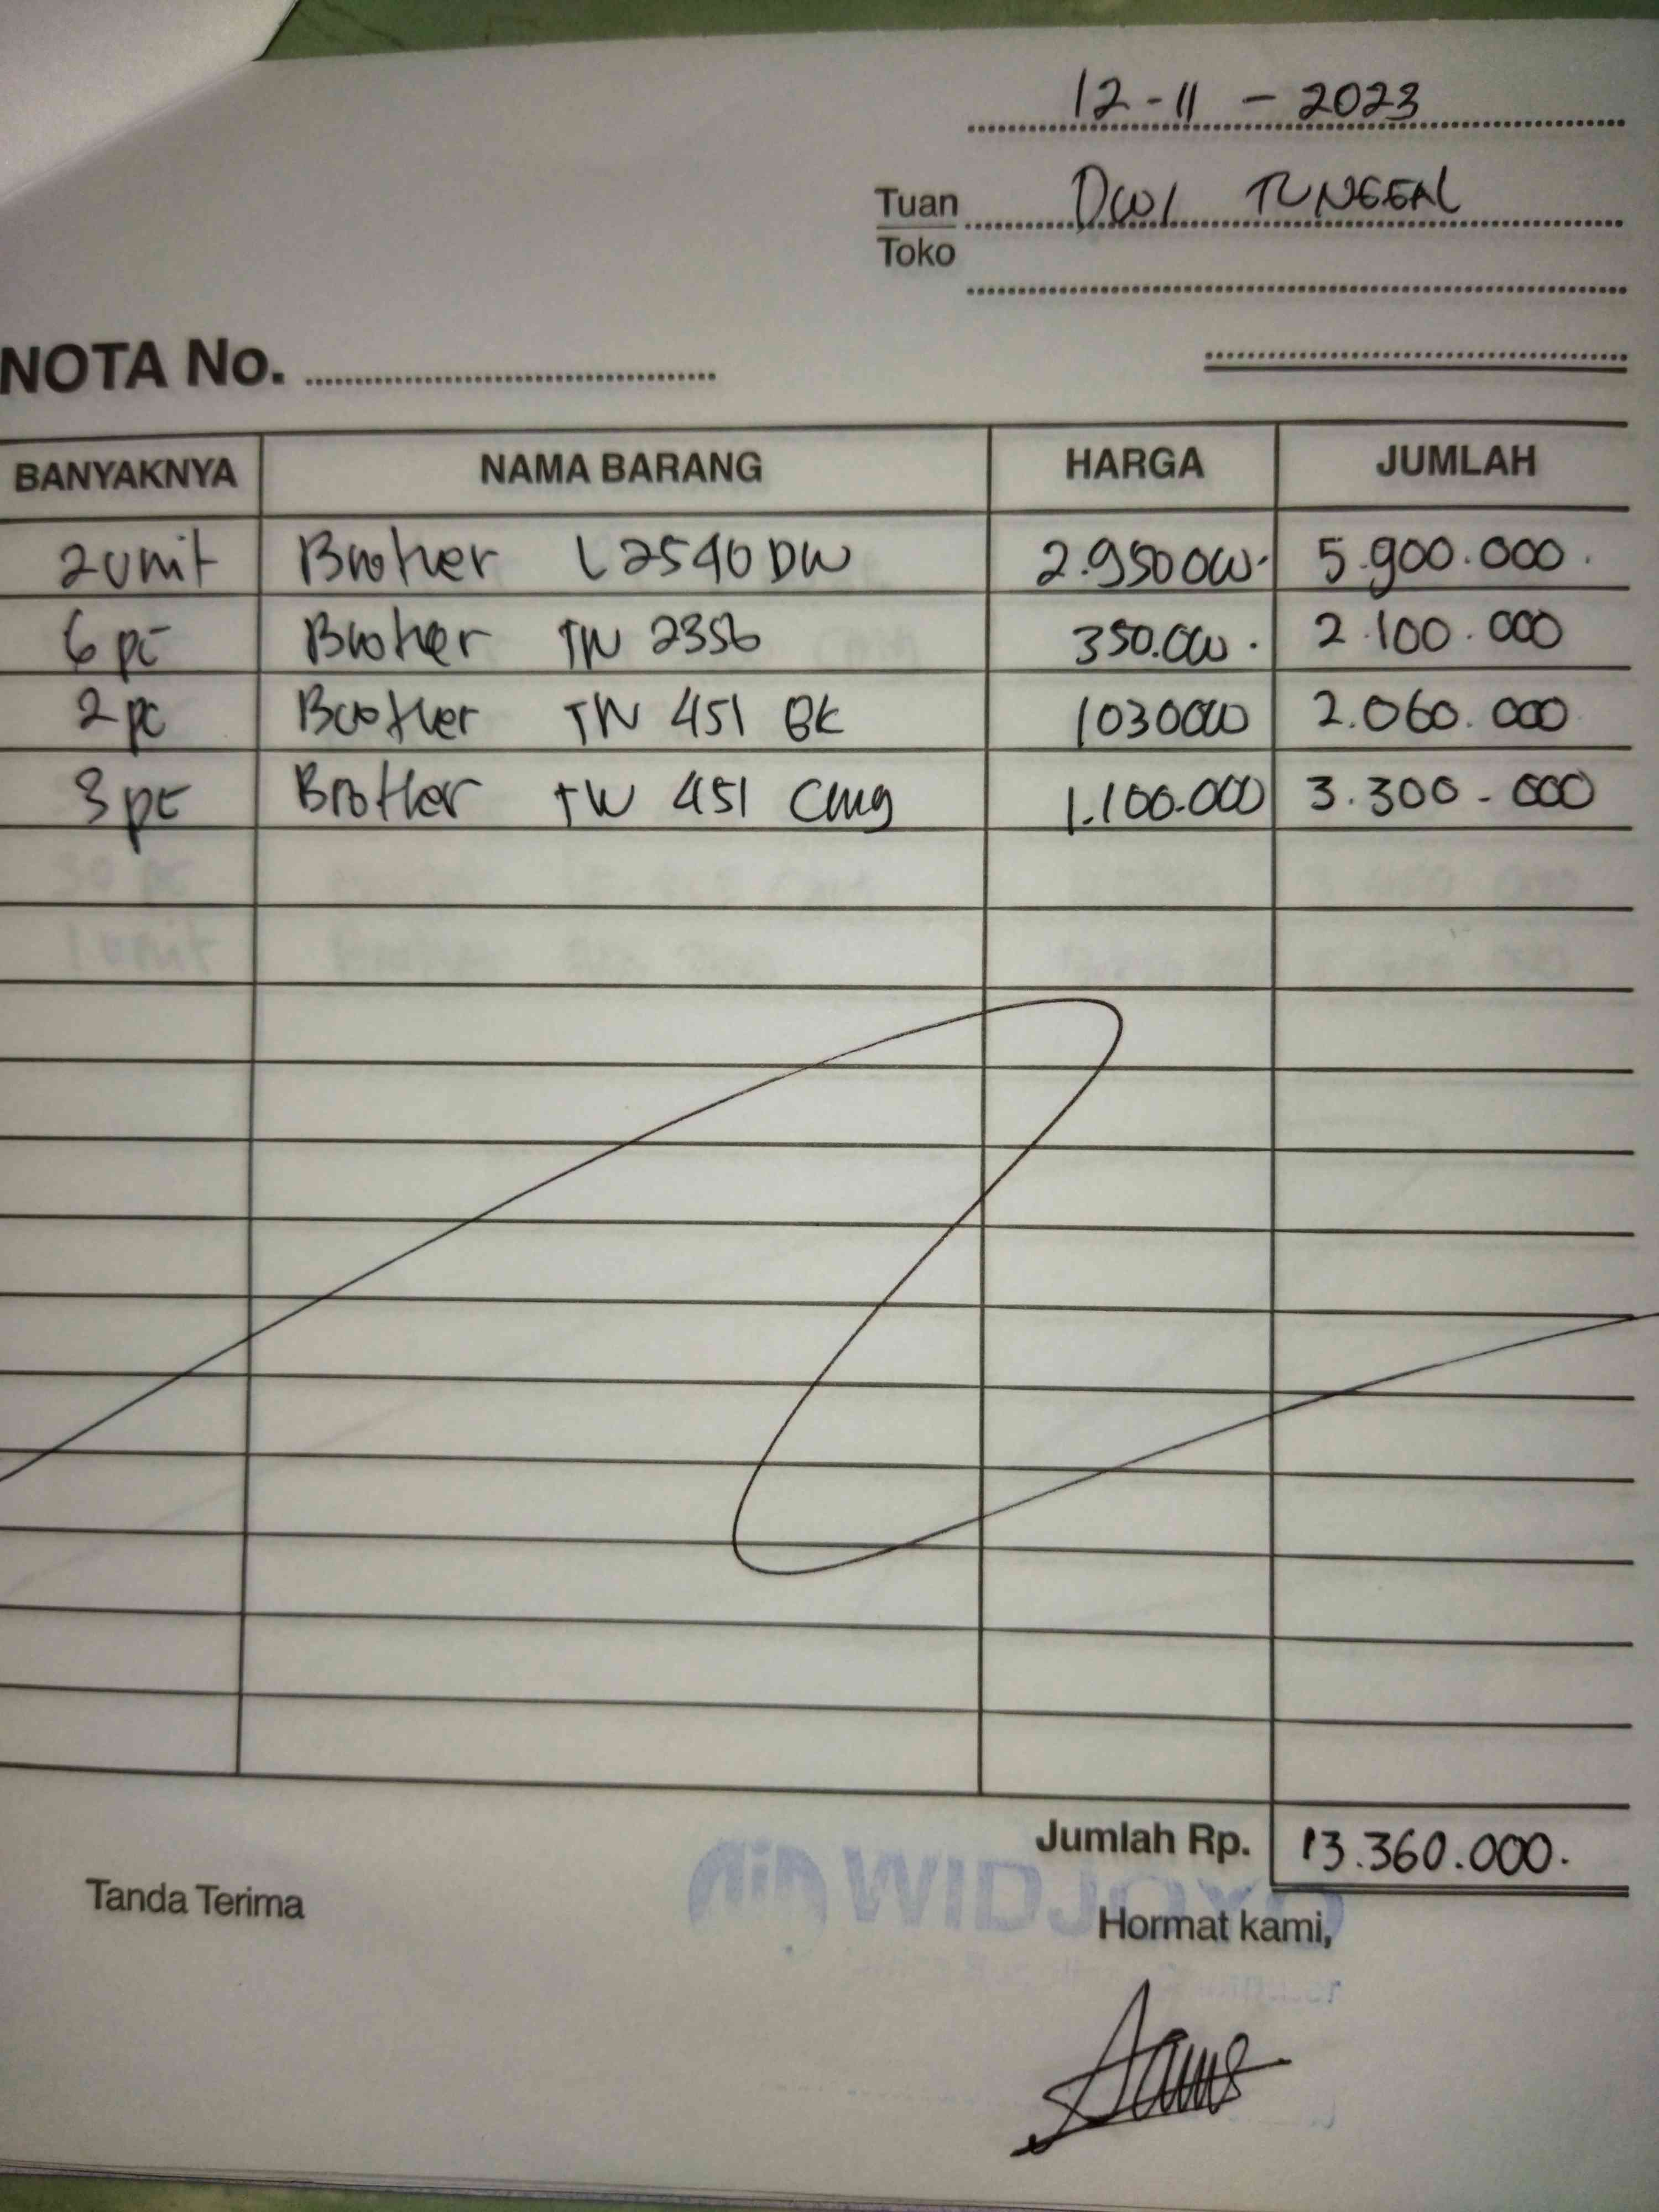 12-11-2023
Tuan DWI TUNGGAL
Toko
NOTA No.
BANYAKNYA NAMA BARANG HARGA JUMLAH
2 unit Brother L2540 DW 2.950000. 5.900.000.
6 pc Brother TN 2356 350.000. 2.100.000
2 pc Brother TN 451 BK 1030000 2.060.000
3 pc Brother TN 451 Cmy 1.100.000 3.300-000
Jumlah Rp. 13.360.000.
Tanda Terima
Hormat kami,
WIDJOYO